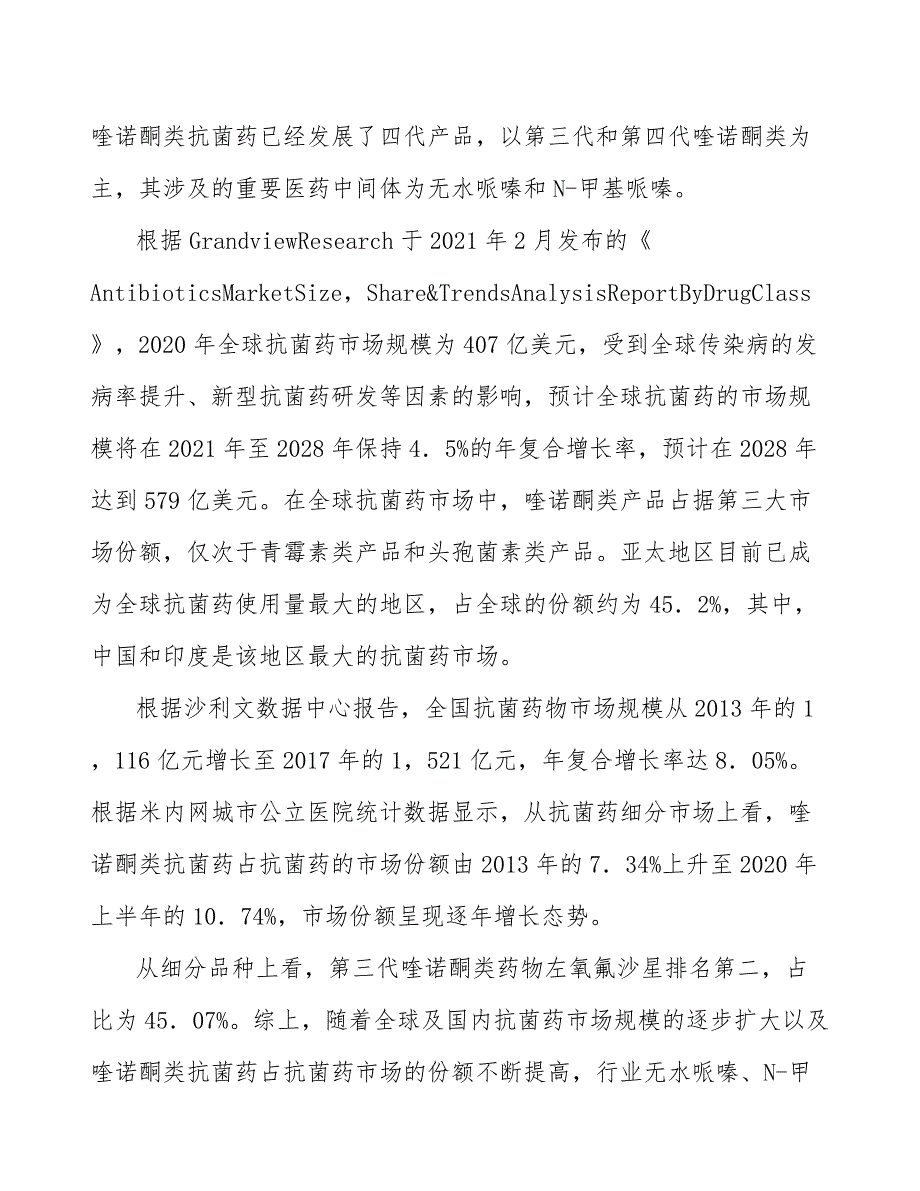 喹诺酮类抗菌药已经发展了四代产品，以第三代和第四代喹诺酮类为
主，其涉及的重要医药中间体为无水哌嗪和 N-甲基哌嗪。
根据 GrandviewResearch 于 2021 年 2 月发布的《
AntibioticsMarketSize，Share&TrendsAnalysisReportByDrugClass
》，2020 年全球抗菌药市场规模为 407 亿美元，受到全球传染病的发
病率提升、新型抗菌药研发等因素的影响，预计全球抗菌药的市场规
模将在 2021 年至 2028 年保持 4．5%的年复合增长率，预计在 2028 年
达到 579 亿美元。在全球抗菌药市场中，喹诺酮类产品占据第三大市
场份额，仅次于青霉素类产品和头孢菌素类产品。亚太地区目前已成
为全球抗菌药使用量最大的地区，占全球的份额约为 45．2%，其中，
中国和印度是该地区最大的抗菌药市场。
根据沙利文数据中心报告，全国抗菌药物市场规模从 2013 年的 1
，116 亿元增长至 2017 年的 1，521 亿元，年复合增长率达 8．05%。
根据米内网城市公立医院统计数据显示，从抗菌药细分市场上看，喹
诺酮类抗菌药占抗菌药的市场份额由 2013 年的 7．34%上升至 2020 年
上半年的 10．74%，市场份额呈现逐年增长态势。
从细分品种上看，第三代喹诺酮类药物左氧氟沙星排名第二，占
比为 45．07%。综上，随着全球及国内抗菌药市场规模的逐步扩大以及
喹诺酮类抗菌药占抗菌药市场的份额不断提高，行业无水哌嗪、N-甲